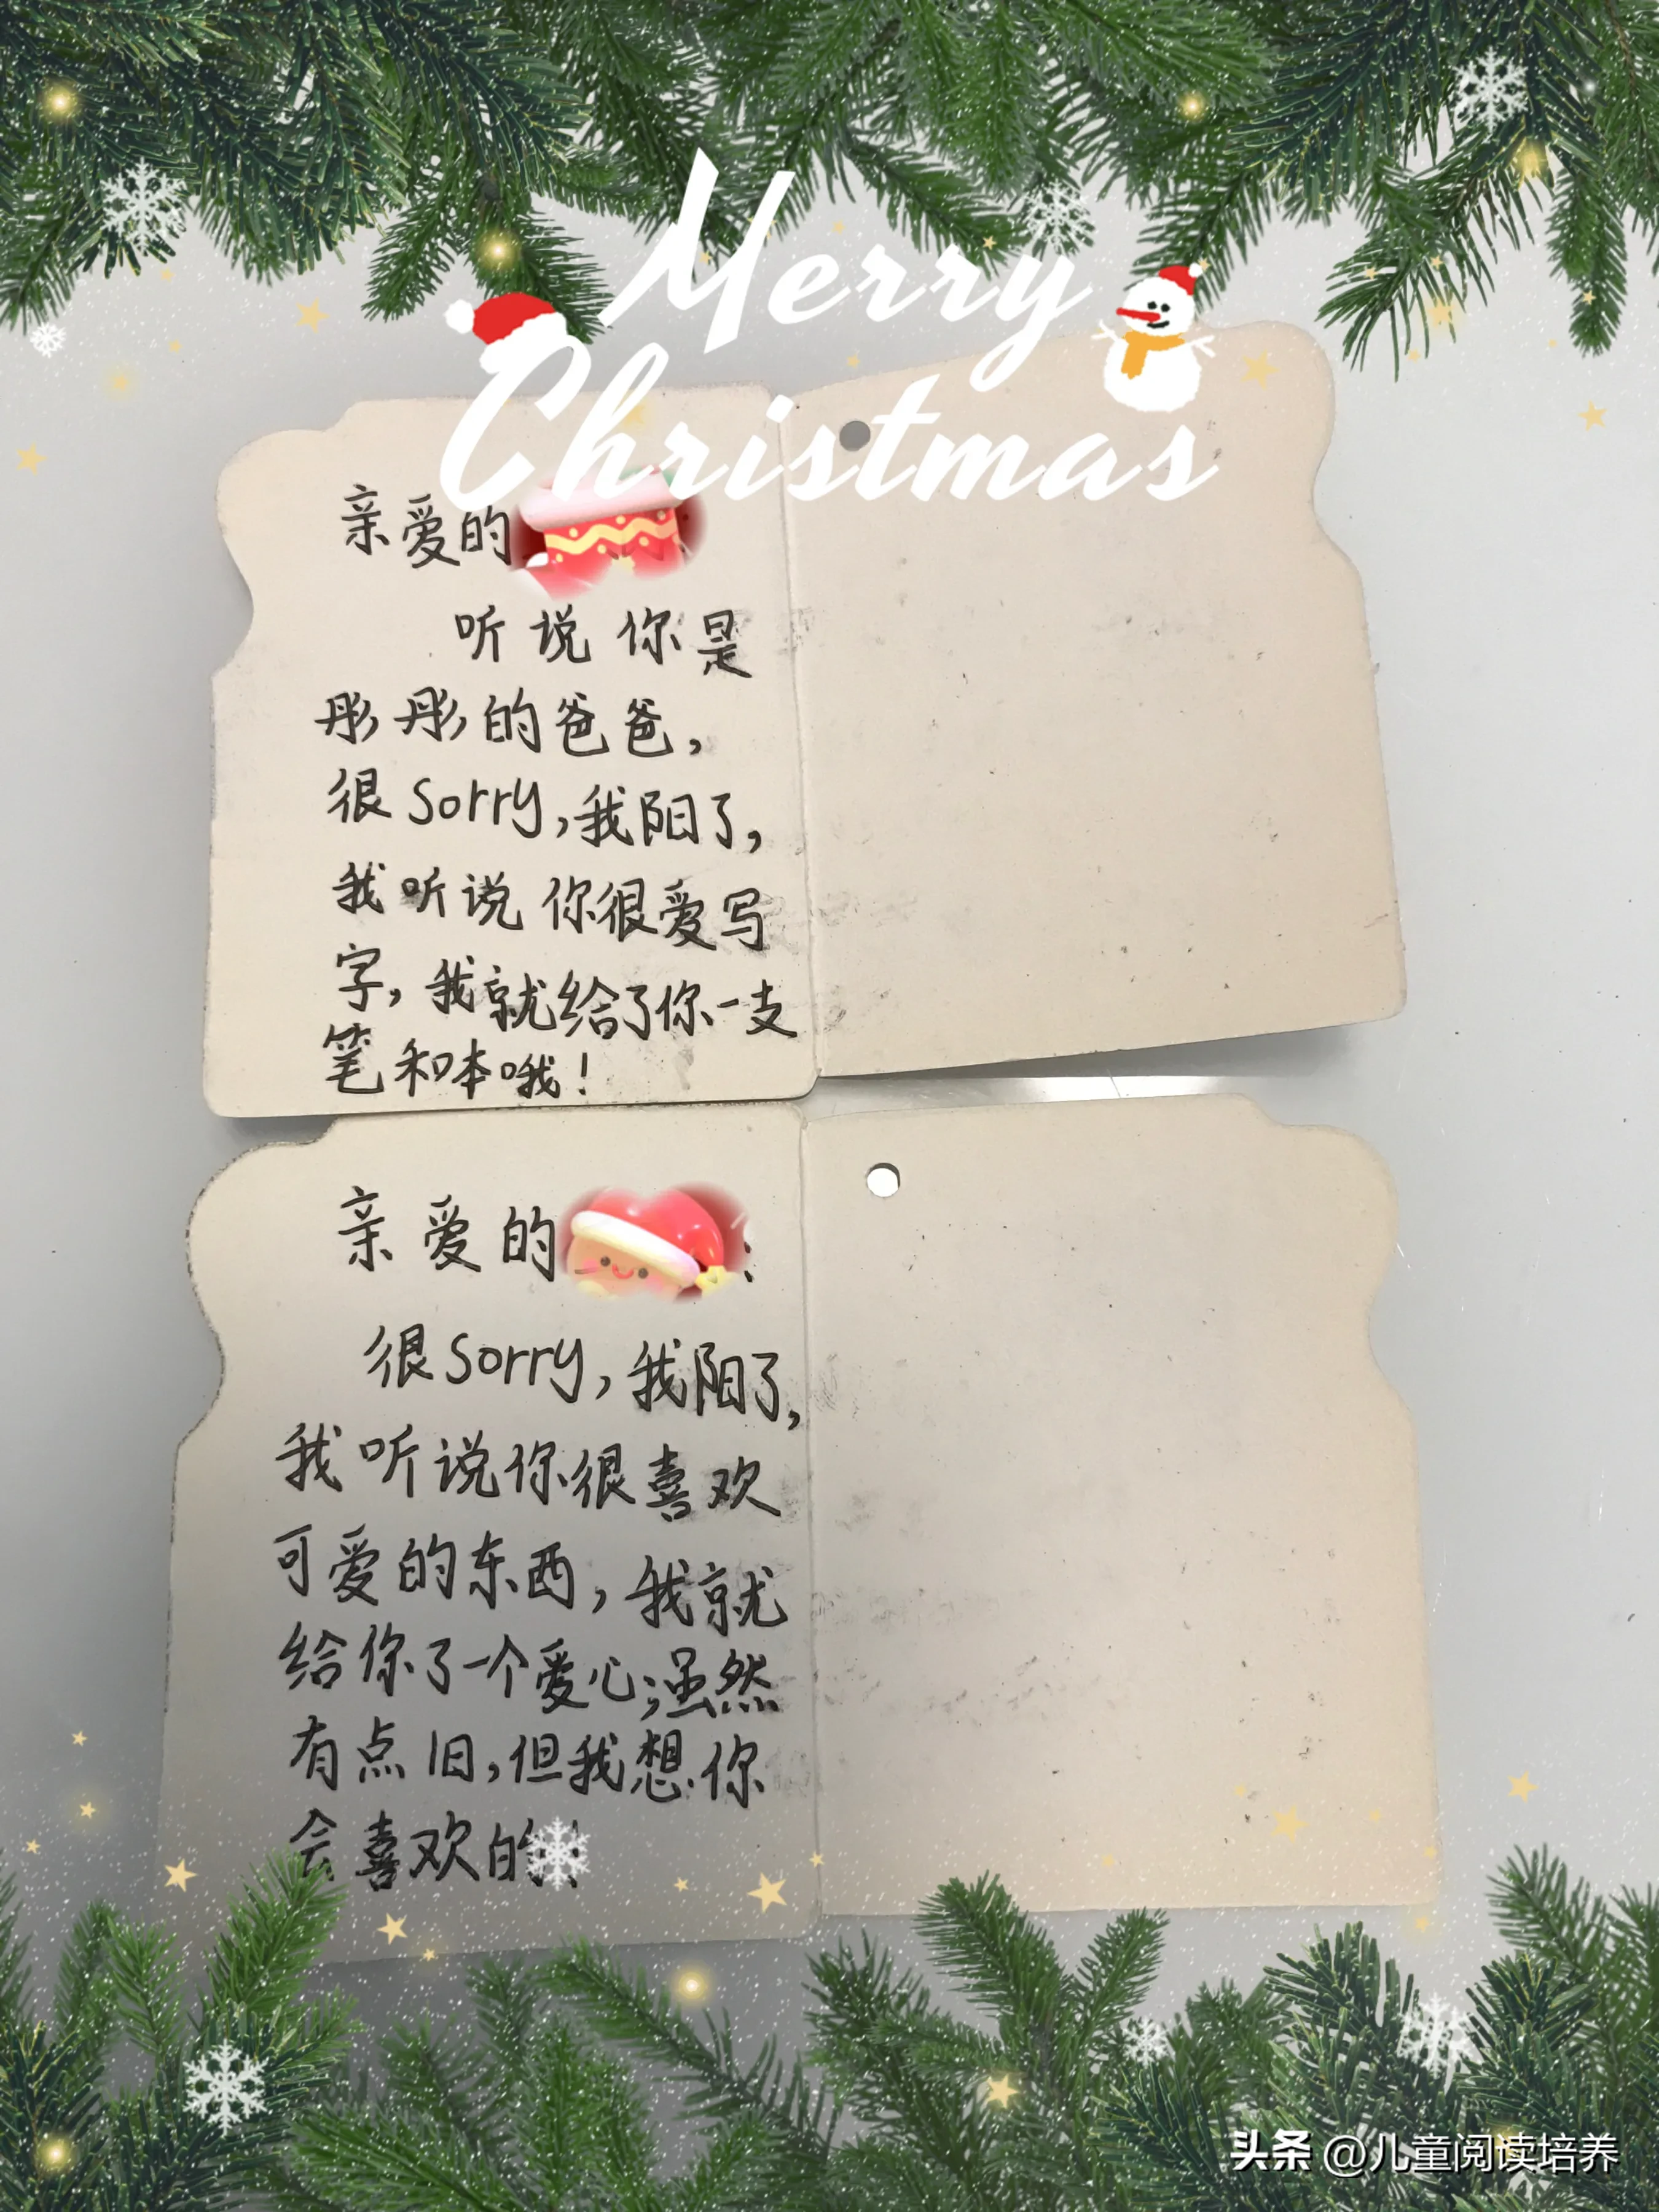 Merry
Christmas
亲爱的
听说你是
彤彤的爸爸，
很Sorry，我阳了，
我听说你很爱写
字，我就给了你一支
笔和本哦！
亲爱的：
很Sorry，我阳了，
我听说你很喜欢
可爱的东西，我就
给你了一个爱心；虽然
有点旧，但我想你
会喜欢的！
头条 @儿童阅读培养